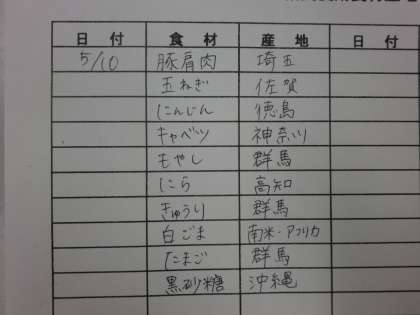 日付 食材 産地 日付
5/10 豚肩肉 埼玉
玉ねぎ 佐賀
にんじん 徳島
キャベツ 神奈川
もやし 群馬
にら 高知
きゅうり 群馬
白ごま 南米・アフリカ
たまご 群馬
黒砂糖 沖縄